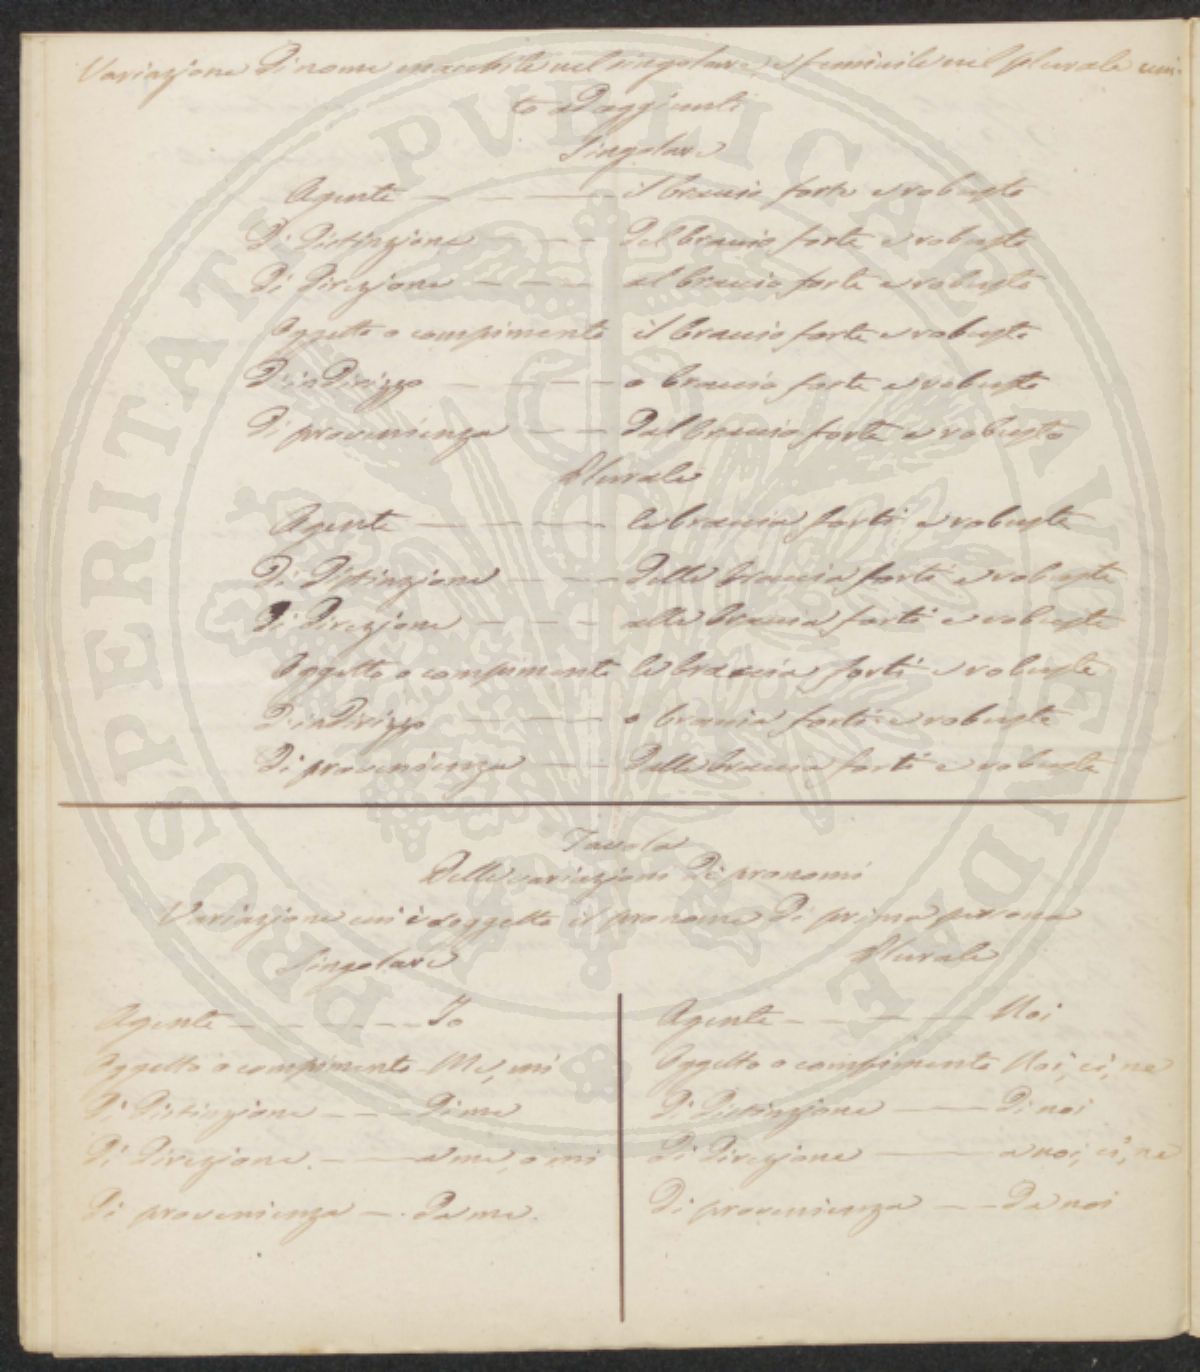 Variazione di nome maschile nel singolare, e feminile nel plurale uni-
to ad aggiunti
Singolare
Agente — — — — il braccio forte e robusto
Di distinzione — — — del braccio forte e robusto
Di direzione — — — al braccio forte e robusto
Oggetto o compimento il braccio forte e robusto
D'indirizzo — — — — o braccio forte e robusto
Di provenienza — — dal braccio forte e robusto
Plurale
Agente — — — — le braccia forti e robuste
Di distinzione — — — delle braccia forti e robuste
Di direzione — — — alle braccia forti e robuste
Oggetto o compimento le braccia forti e robuste
D'indirizzo — — — o braccia forti e robuste
Di provenienza — — dalle braccia forti e robuste
Tavola
Delle variazioni di pronomi
Variazione cui è soggetto il pronome di prima persona
Singolare
Agente — — — — Io
Oggetto o compimento — Me, mi
Di distinzione — — — Di me
Di direzione. — — — a me, o mi
Di provenienza — . Da me.
Plurale
Agente — — — — Noi
Oggetto o compimento Noi, ci, ne
Di distinzione — — Di noi
Di direzione — — a noi, ci, ne
Di provenienza — — Da noi
PROSPERITATI PUBLICAE AUGENDAE